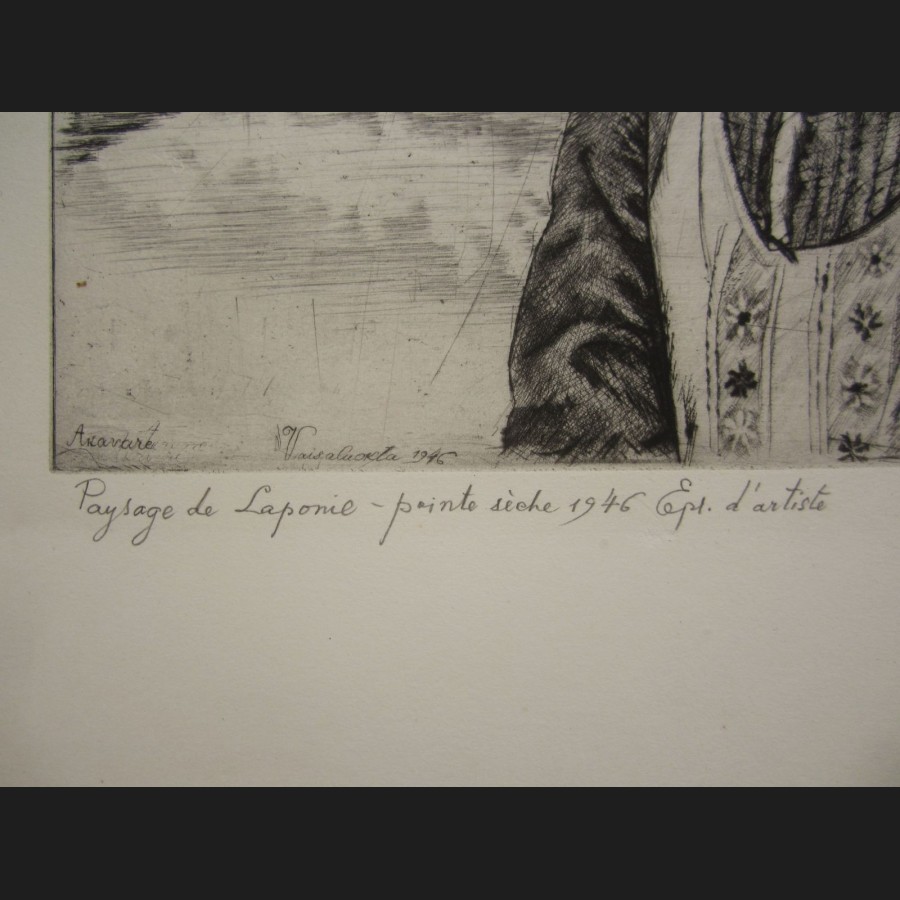 Akavaré Vaisaluokta 1946
Paysage de Laponie - pointe sèche 1946 Epr. d'artiste